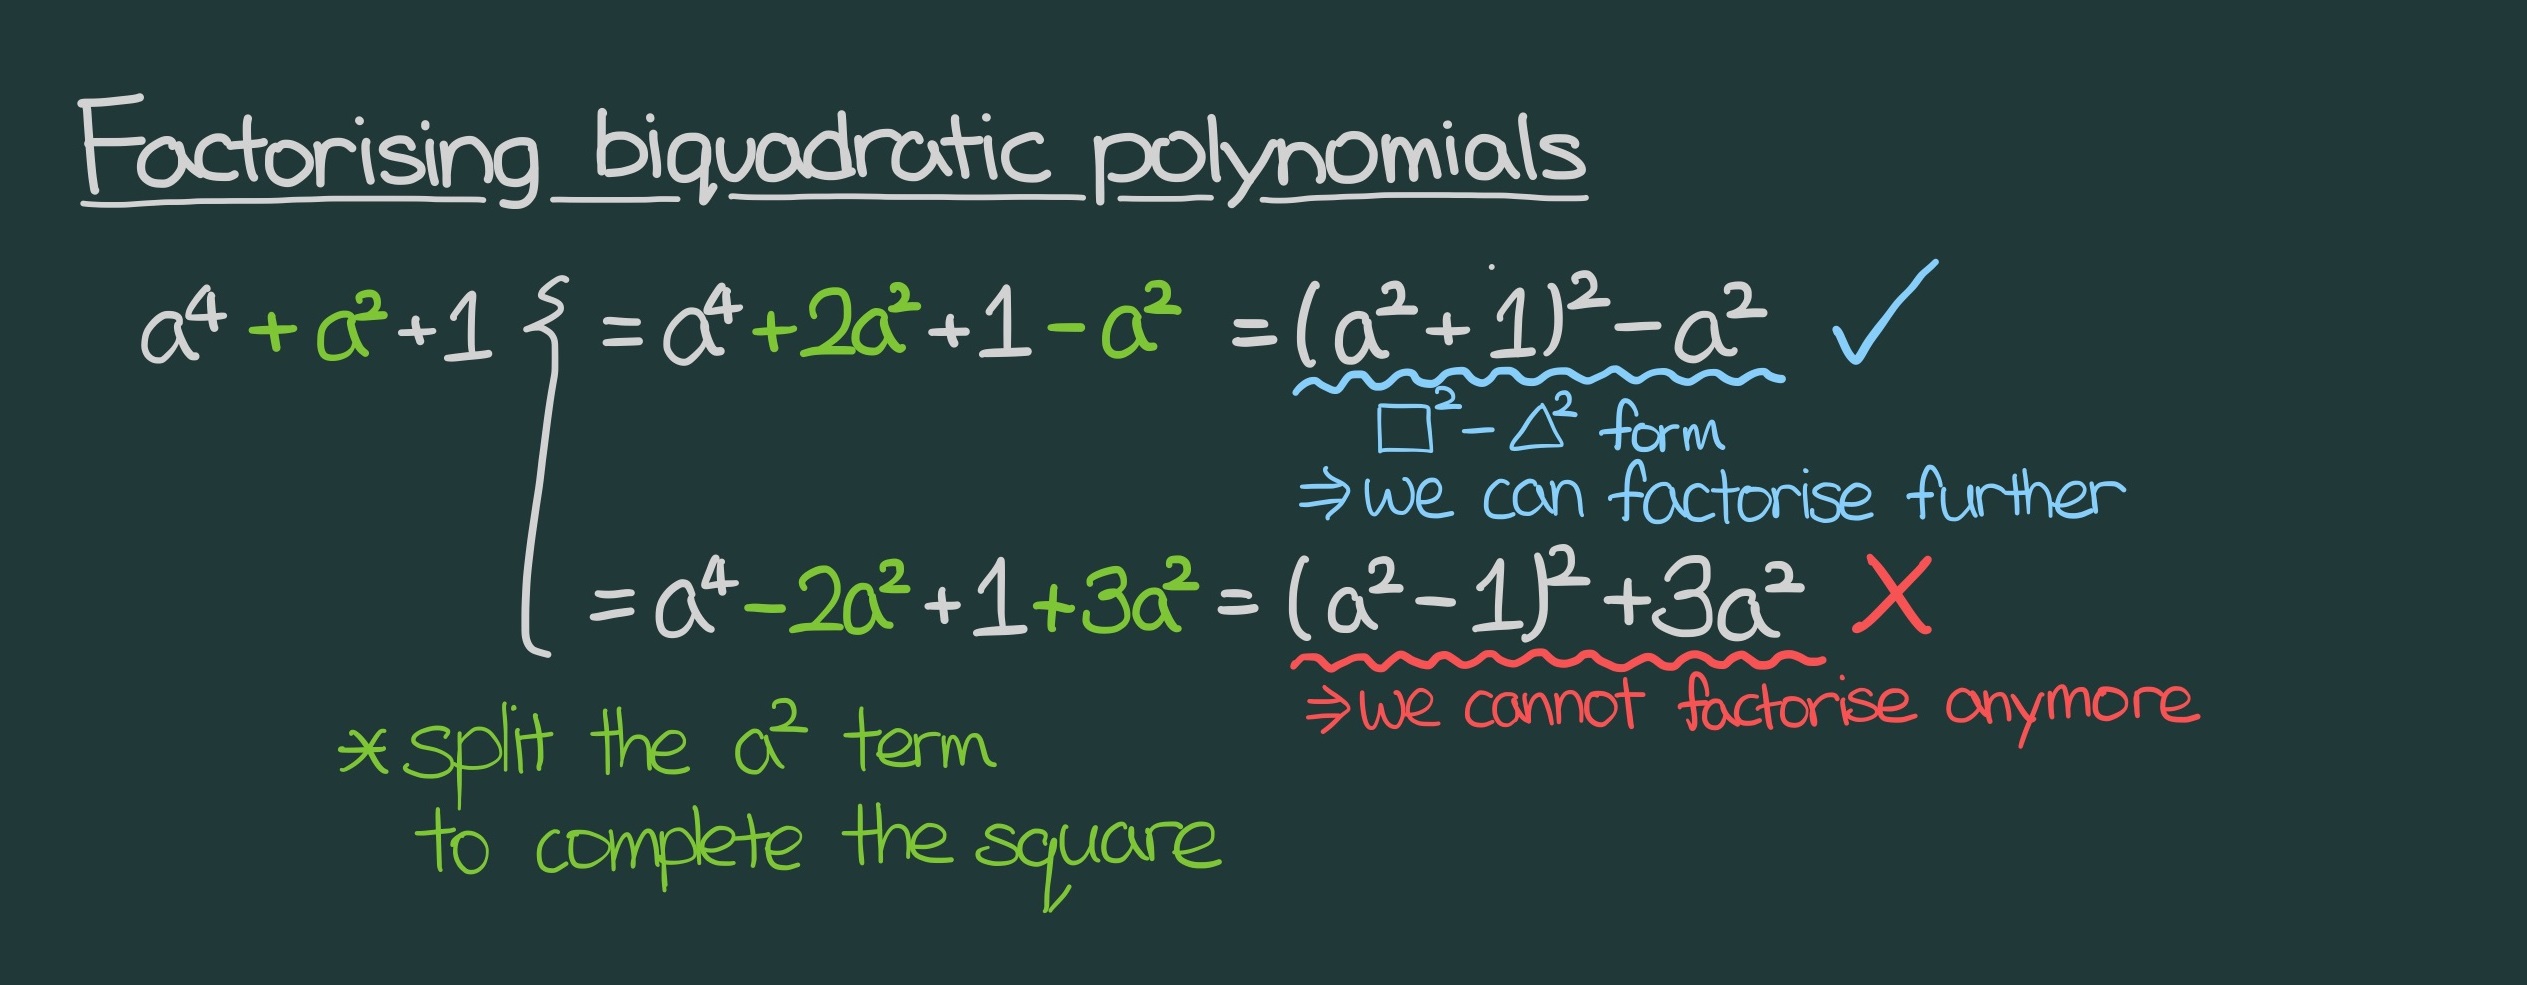 Factorising biquadratic polynomials
a⁴ + a² + 1 { = a⁴ + 2a² + 1 - a² = (a² + 1)² - a² ✓
□² - △² form
⇒ we can factorise further
= a⁴ - 2a² + 1 + 3a² = (a² - 1)² + 3a² X
⇒ we cannot factorise anymore
* split the a² term
to complete the square